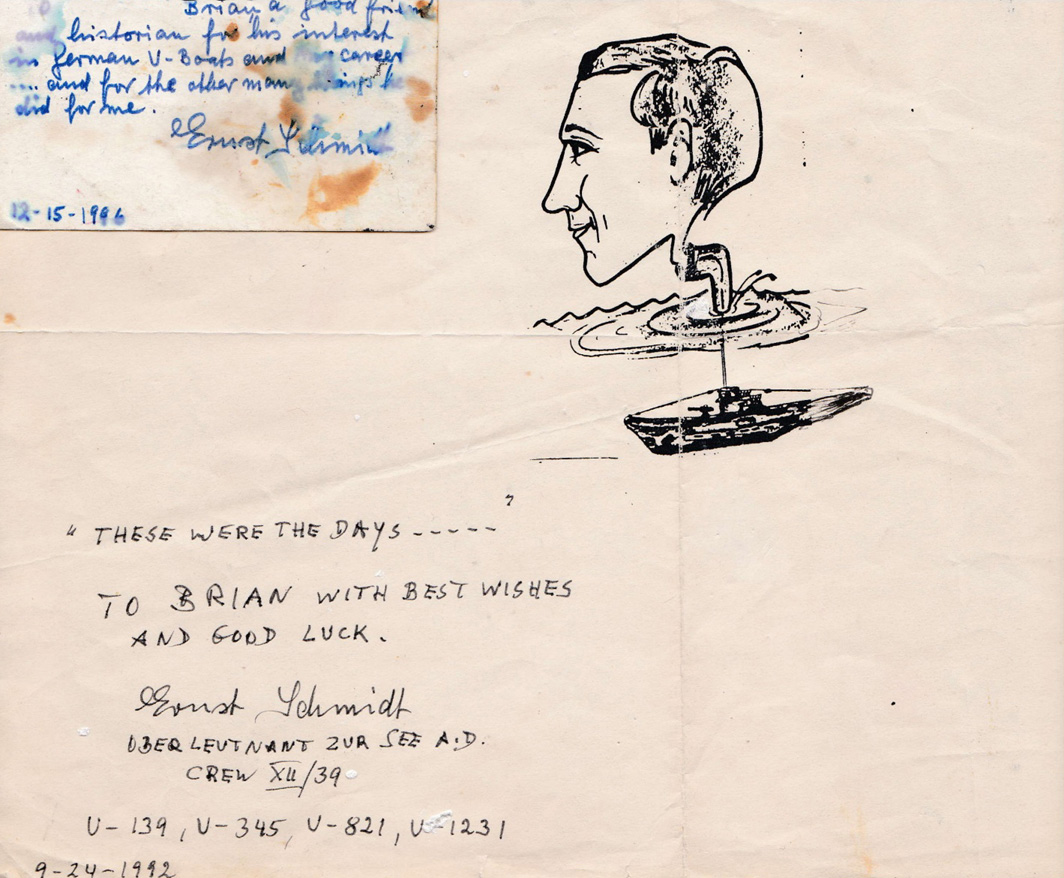 Brian a good friend
and historian for his interest
in German U-Boats and my career
.... and for the other many things he
did for me.
Ernst Schmidt
12-15-1996
"THESE WERE THE DAYS-----"
TO BRIAN WITH BEST WISHES
AND GOOD LUCK.
Ernst Schmidt
OBERLEUTNANT ZUR SEE A.D.
CREW XII/39
U-139, U-345, U-821, U-1231
9-24-1992